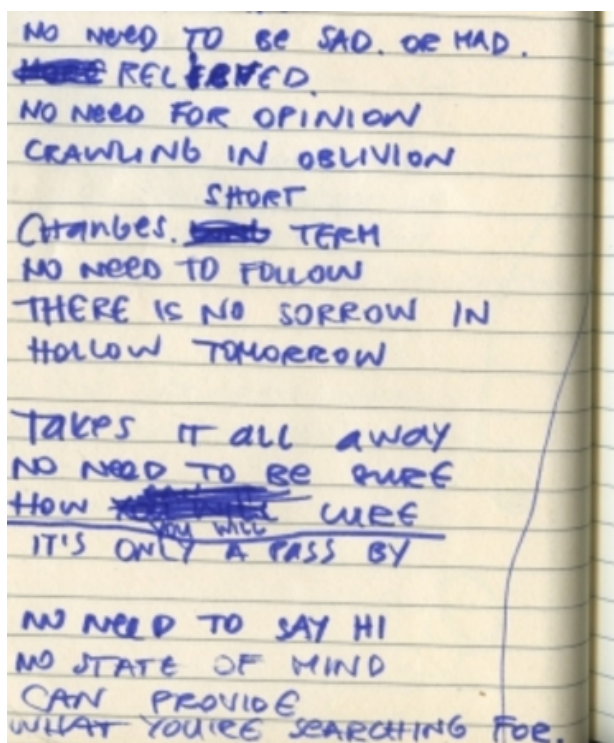 NO NEED TO BE SAD. OR MAD.
RELIEVED.
NO NEED FOR OPINION
CRAWLING IN OBLIVION
SHORT
CHANGES. TERM
NO NEED TO FOLLOW
THERE IS NO SORROW IN
HOLLOW TOMORROW
TAKES IT ALL AWAY
NO NEED TO BE SURE
HOW CURE
YOU WILL
IT'S ONLY A PASS BY
NO NEED TO SAY HI
NO STATE OF MIND
CAN PROVIDE
WHAT YOU'RE SEARCHING FOR.